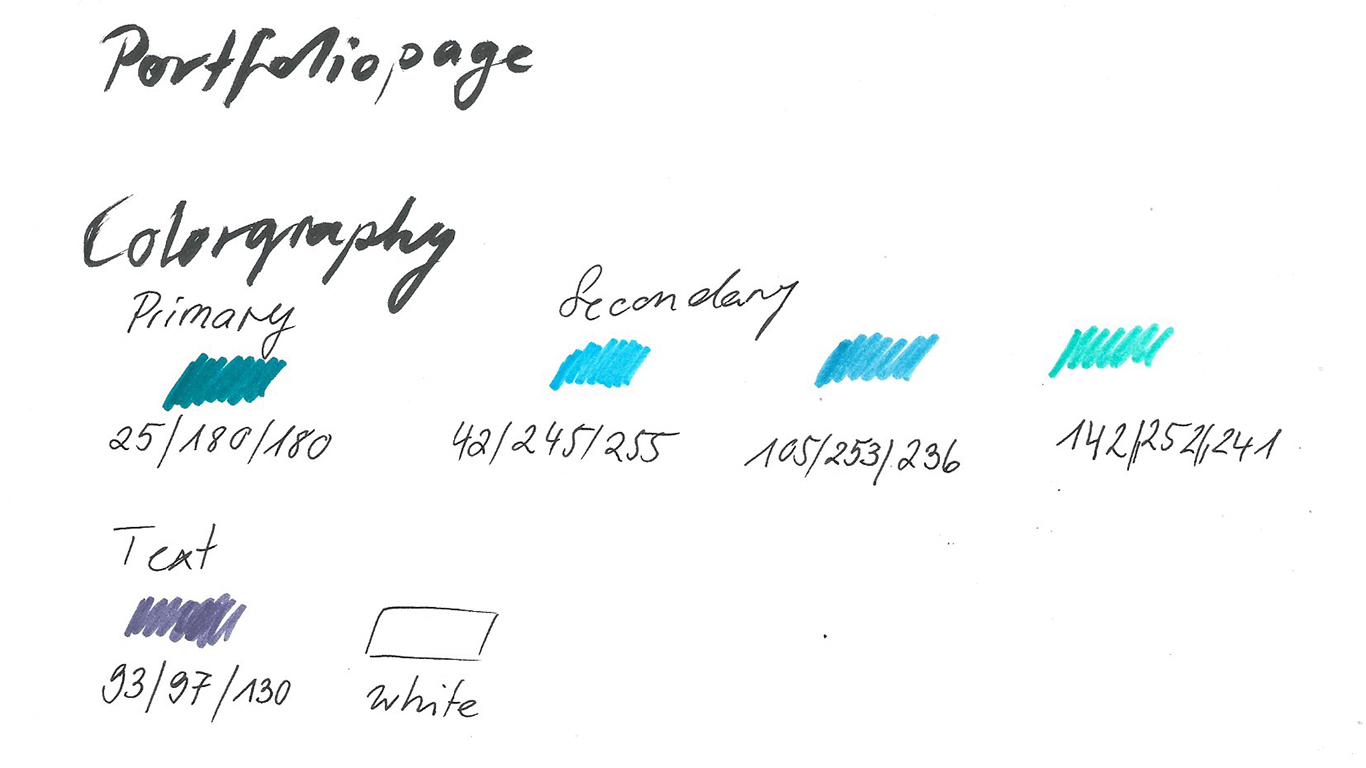 Portfoliopage
Colorgraphy
Primary
Secondary
25/180/180
42/245/255
105/253/236
142/252/241
Text
93/97/130
white